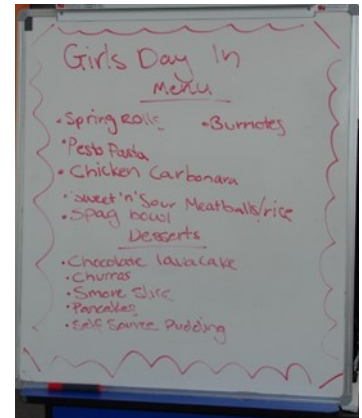 Girls Day In
Menu
• Spring Rolls • Burritoes
• Pesto Pasta
• Chicken Carbonara
• Sweet 'n' Sour Meatballs/rice
• Spag bowl
Desserts
• Chocolate lavacake
• Churras
• Smore Slice
• Pancakes
• Self Saucee Pudding